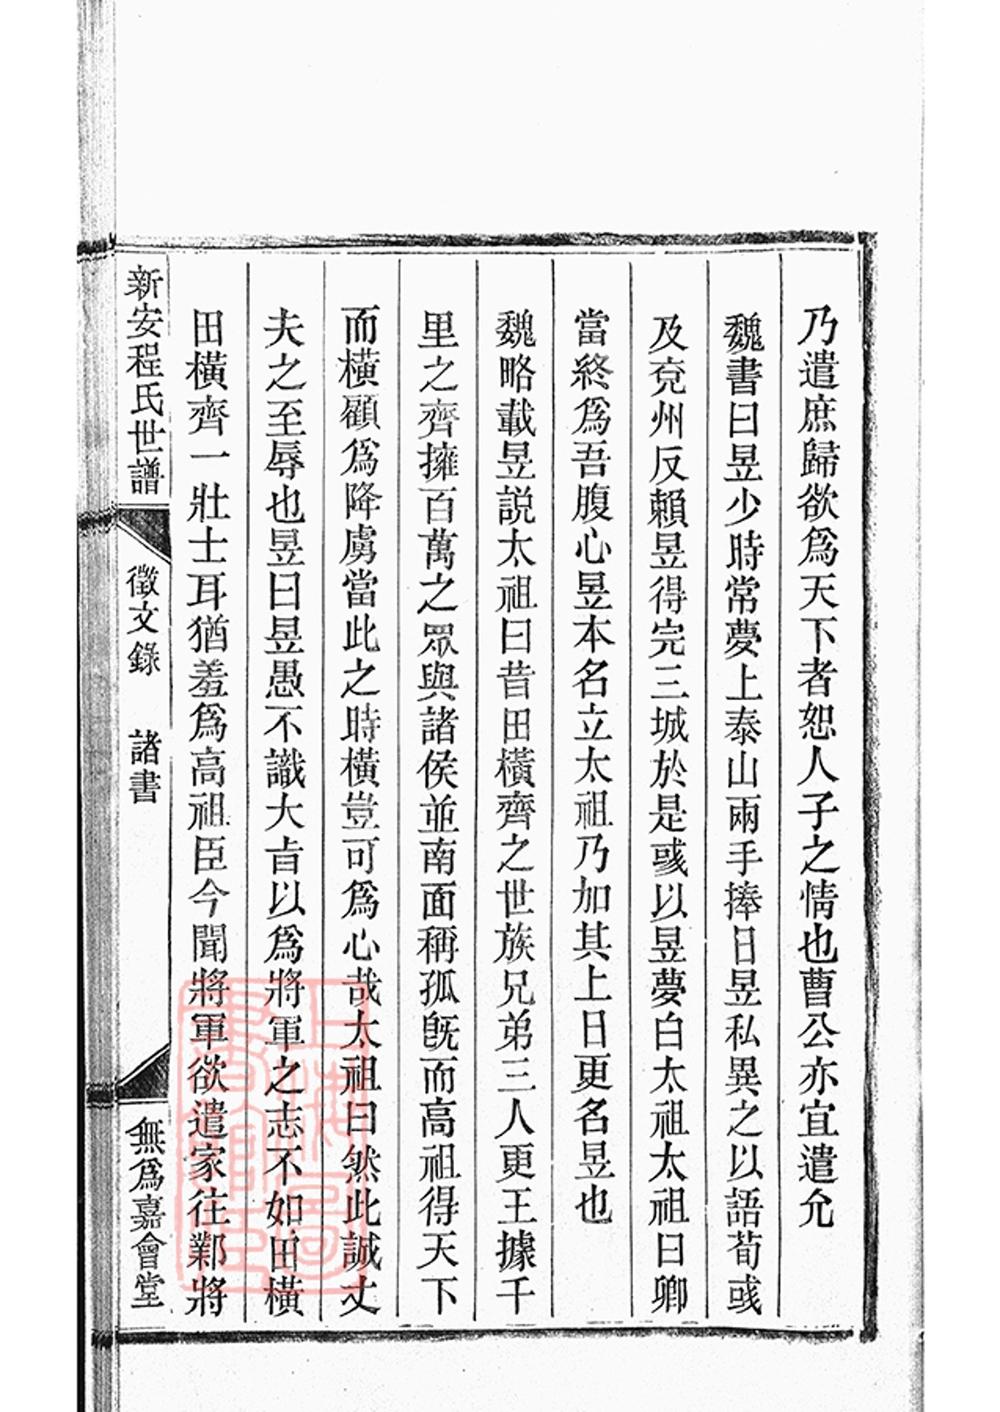 乃遣庶歸欲爲天下者恕人子之情也曹公亦宜遣允
魏書曰昱少時常夢上泰山兩手捧日昱私異之以語荀彧
及兗州反賴昱得完三城於是彧以昱夢白太祖太祖曰卿
當終爲吾腹心昱本名立太祖乃加其上日更名昱也
魏略載昱說太祖曰昔田橫齊之世族兄弟三人更王據千
里之齊擁百萬之眾與諸侯並南面稱孤旣而高祖得天下
而橫顧爲降虜當此之時橫豈可爲心哉太祖曰然此誠丈
夫之至辱也昱曰昱愚不識大旨以爲將軍之志不如田橫
田橫齊一壯士耳猶羞爲高祖臣今聞將軍欲遣家往鄴將
新安程氏世譜 徵文錄 諸書 無爲嘉會堂
上海圖書館藏